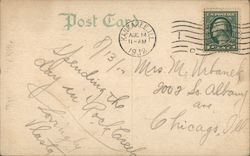 Post Card
AUG 14
11-AM
1912
8/13/12
Spending the
Day in Rock Creek
Lovingly
Mrs. M. Urbanek
2002 So. Albany
ave
Chicago, Ill